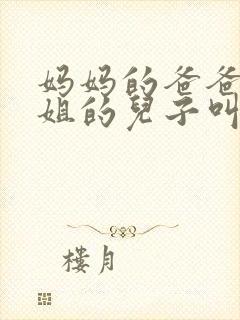 妈妈的爸爸
姐的兒子叫
樓月